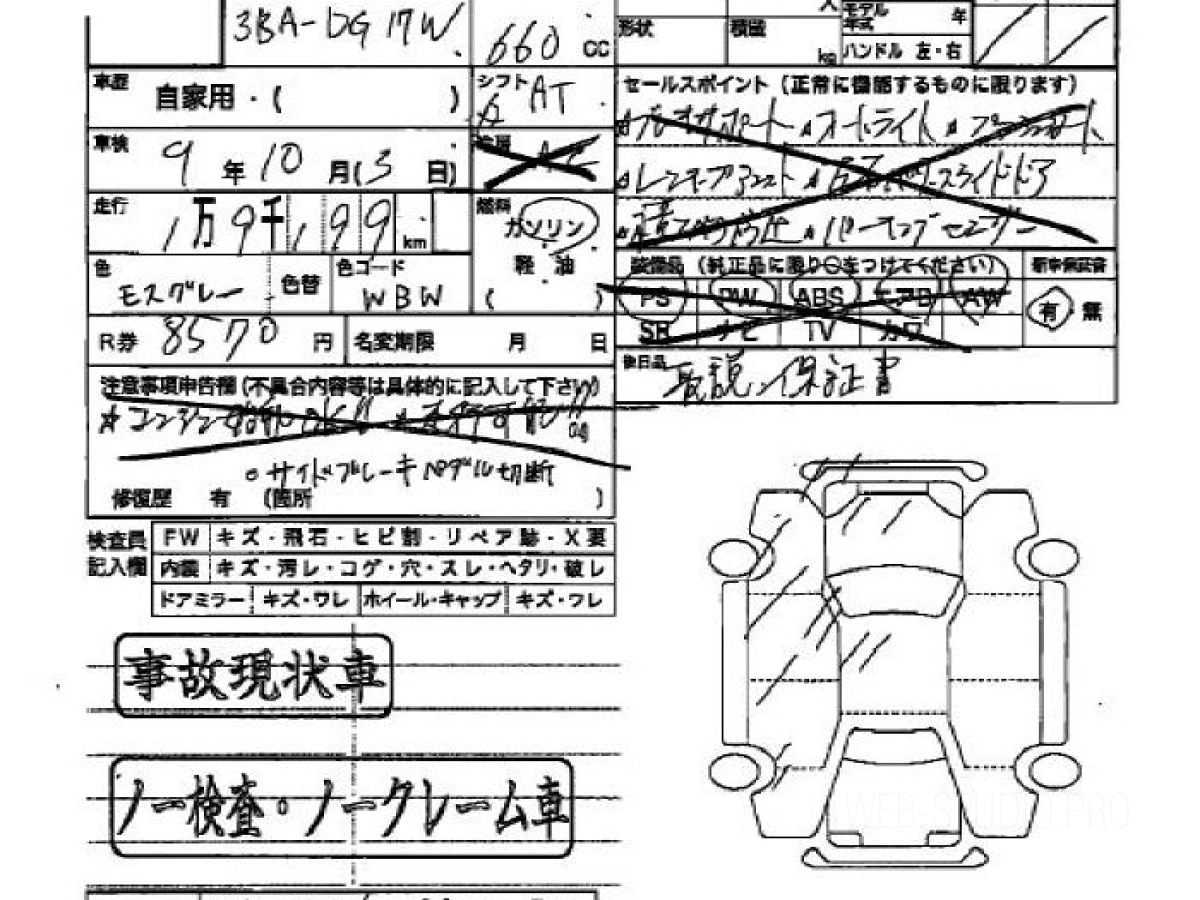 3BA-DG17W
660 CC
人
モデル
年式
年
形状
積載
kg
ハンドル 左・右
車歴
自家用・( )
シフト
AT
車検
9年10月13日)
走行
1万9千,199km
燃料
ガソリン
軽油
( )
色
モスグレー
色替
色コード
WBW
R券
8570円
名変期限 月 日
セールスポイント (正常に機能するものに限ります)
☆ブレーキサポート ☆オートライト
☆レーンキープアシスト ☆両側パワースライドドア
☆パーキングセンサー
装備品 (純正品に限り○をつけてください)
新車保証書
PS PW ABS エアB AW
有・無
SR ナビ TV カワ
後日品
取説、保証書
注意事項申告欄 (不具合内容等は具体的に記入して下さい)
☆エンジン始動OK!! ☆走行可能!!
○サイドブレーキペダル切断
修復歴 有 (箇所 )
検査員
記入欄
FW キズ・飛石・ヒビ割・リペア跡・X要
内装 キズ・汚レ・コゲ・穴・スレ・ヘタリ・破レ
ドアミラー キズ・ワレ ホイール・キャップ キズ・ワレ
事故現状車
ノー検査・ノークレーム車
WEB-STUDIO.PRO